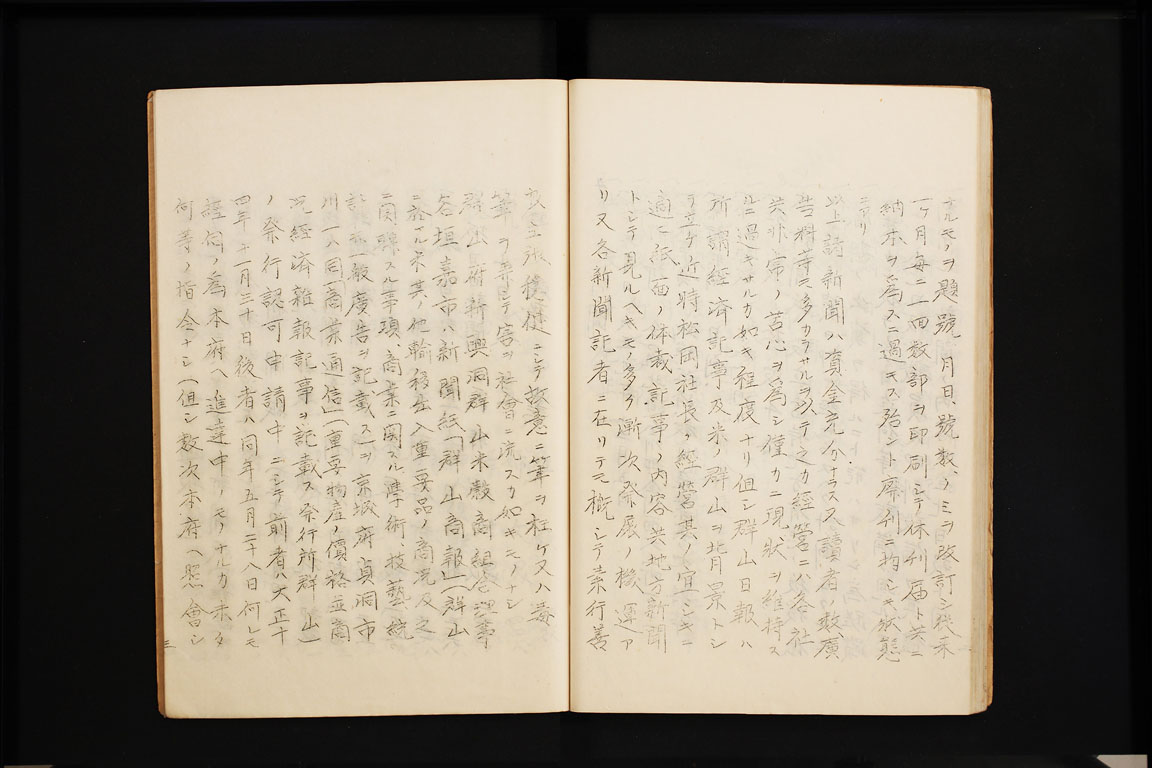 ナルモノヲ題號、月日、號数、ノミヲ改訂シ従来
一ケ月毎ニ一回数部ヲ印刷シテ休刊届ト共ニ
納本ヲ為スニ過キス殆ント廃刊ニ均シキ状態
ニアリ
以上諸新聞ハ資金充分ナラス又讀者ノ数廣
告料等モ多カラサルヲ以テ之カ經營ニハ各社
共非常ノ苦心ヲ為シ僅カニ現状ヲ維持ス
ルニ過キサルカ如キ程度ナリ但シ群山日報ハ
所謂経済記事及米ノ群山ヲ背景トシ
テ立ケ近時松岡社長ノ經營其ノ宜シキニ
適ヒ紙面ノ体裁記事ノ内容共地方新聞
トシテ見ルヘキモノ多ク漸次発展ノ機運ア
リ又各新聞記者ニ在リテモ概シテ素行善
穏健ニシテ故意ニ筆ヲ枉ケ又ハ毒
筆ヲ弄シテ害ヲ社會ニ流スカ如キモノナシ
群山府新興洞群山米穀商組合理事
谷垣嘉市ハ新聞紙「群山商報」(群山
ニ於ケル米其ノ他輸移出入重要品ノ商況及之
ニ関聯スル事項、商業ニ関スル學術、技藝、統
計、一般廣告ヲ記載ス)ヲ京城府貞洞市
川一ハ同「商業通信」(重要物産ノ價格並商
况経済雜報記事ヲ記載ス発行所群山)
ノ発行認可申請中ニシテ前者ハ大正十
四年十一月三十日後者ハ同年五月二十八日何レモ
經伺ノ為本府ヘ進達中ノモノナルカ未タ
何等ノ指令ナシ(但シ数次本府ヘ照會シ
三